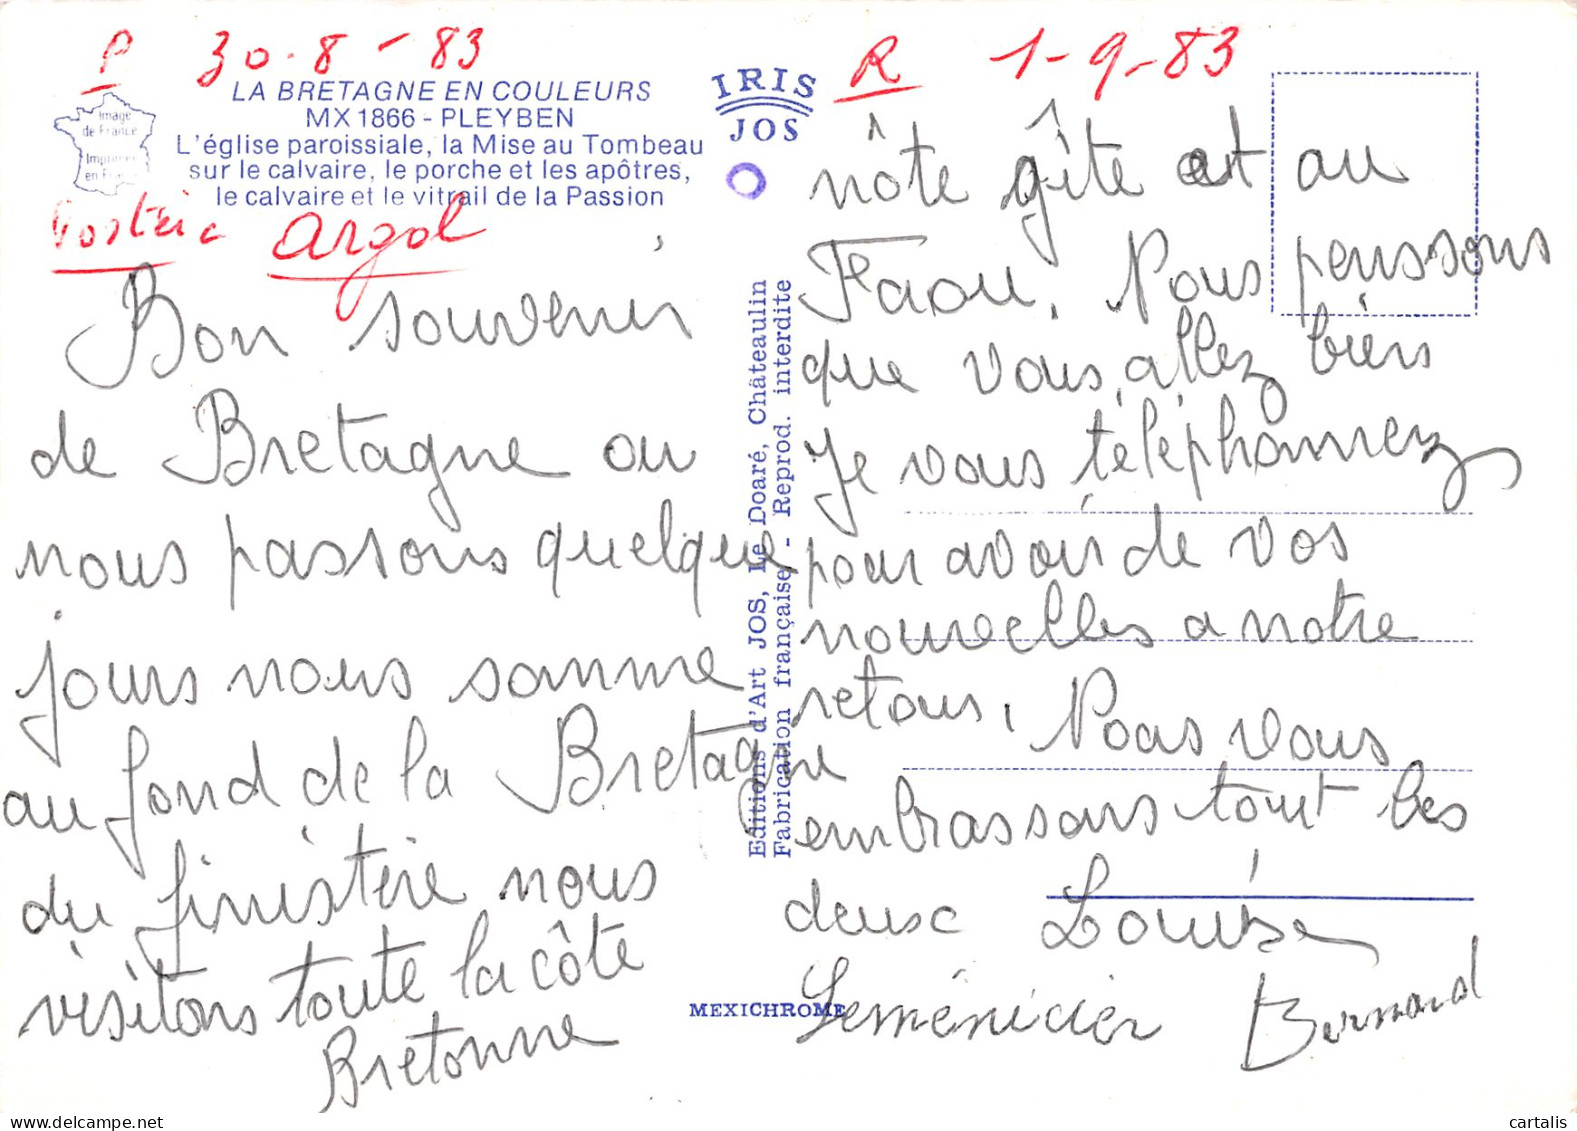 P 30-8-83
LA BRETAGNE EN COULEURS
MX 1866 - PLEYBEN
L'église paroissiale, la Mise au Tombeau
sur le calvaire, le porche et les apôtres,
le calvaire et le vitrail de la Passion
Image
de France
Imprimée
en France
Argol
Bon souvenir
de Bretagne ou
nous passons quelque
jours nous somme
au fond de la Bretagne
du finistère nous
visitons toute la côte
Bretonne
IRIS
JOS
Editions d'Art JOS, Le Doaré, Châteaulin
Fabrication française - Reprod. interdite
MEXICHROME
R 1-9-83
nôte gîte est au
Faou. Nous penssons
que vous allez biens
Je vous téléphonnerz
pour avoir de vos
nouvelles a notre
retour. Nous vous
embrassons tout les
deux Louise
Leménicier Bernard
cartalis